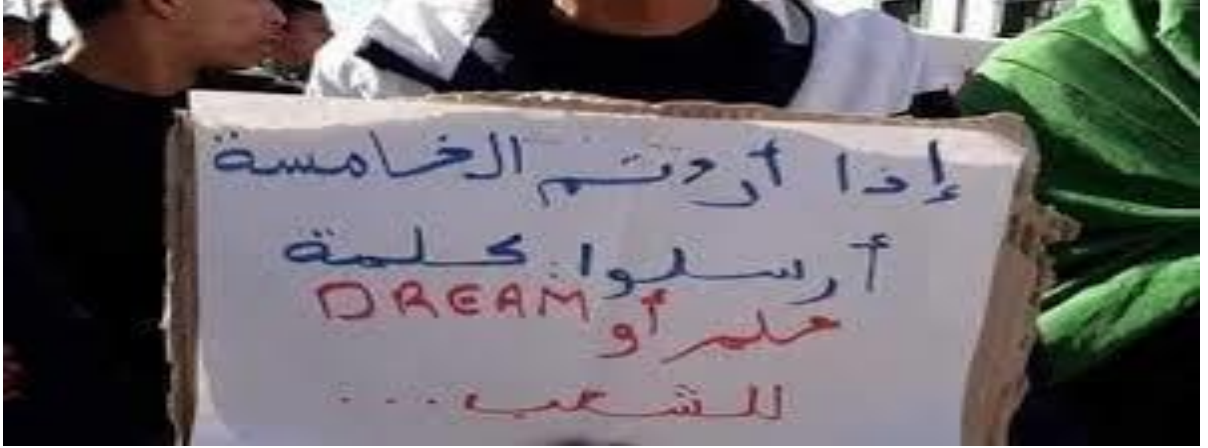 إذا أردتم الخامسة
أرسلوا كلمة
حلم أو DREAM
للشعب...